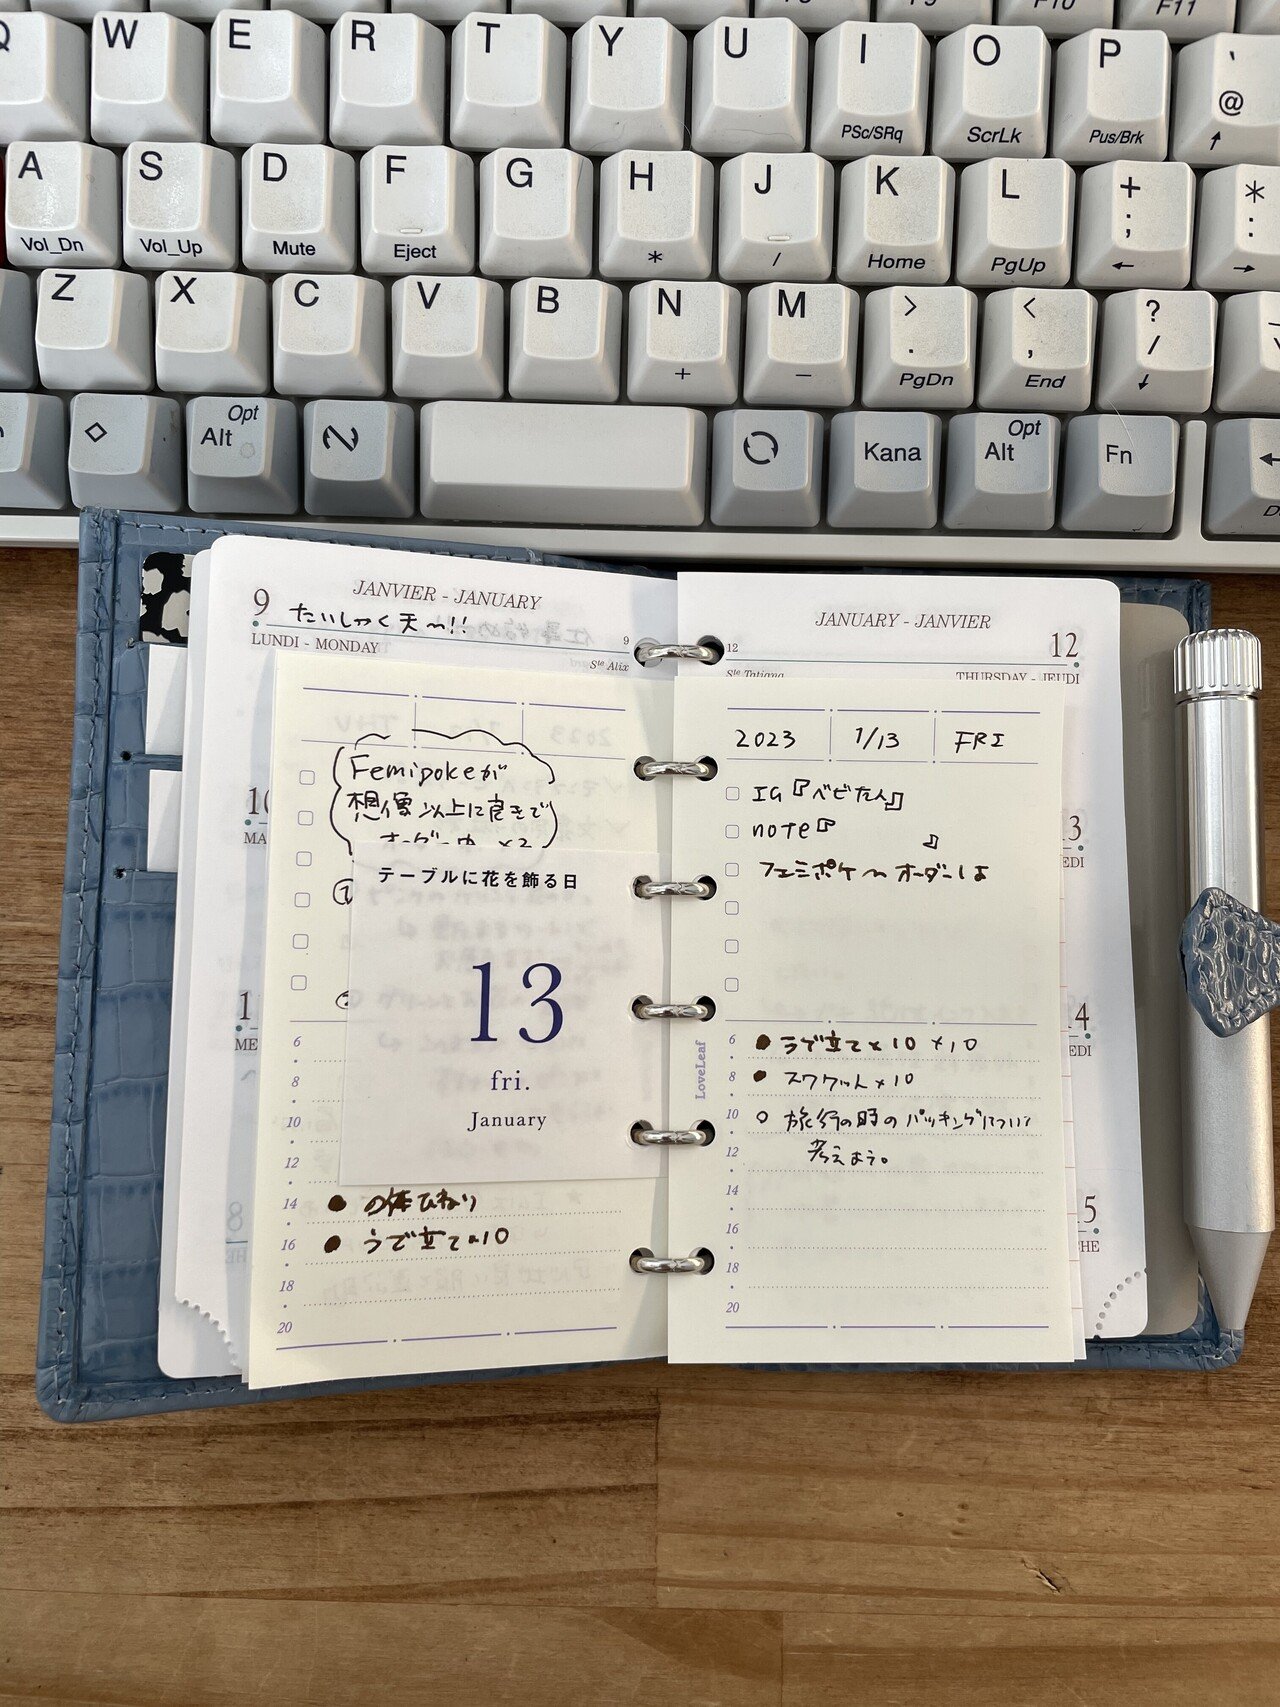 Q W E R T Y U I O P ` @
PSc/SRq ScrLk Pus/Brk ↑
F10 F11
A S D F G H J K L + ; * :
Vol_Dn Vol_Up Mute Eject * / Home PgUp ← →
Z X C V B N M > . < , ? /
+ − PgDn End ↓
Alt Opt Kana Alt Opt Fn ←
JANVIER - JANUARY
9 たいしゃく天へ!!
LUNDI - MONDAY
9
Ste Alix
Femipokeが
想像以上に良きで
テーブルに花を飾る日
13
fri.
January
6
8
10
12
14
16
18
20
の体ひねり
うで立て×10
JANUARY - JANVIER
12
12
Ste Tatiana
THURSDAY - JEUDI
2023 1/13 FRI
IG『ベビたん』
note『 』
フェミポケへオーダーしよ
LoveLeaf
6 うで立て×10 ×10
8 スクワット×10
10 旅行の時のパッキングについて
12 考えよう。
14
16
18
20